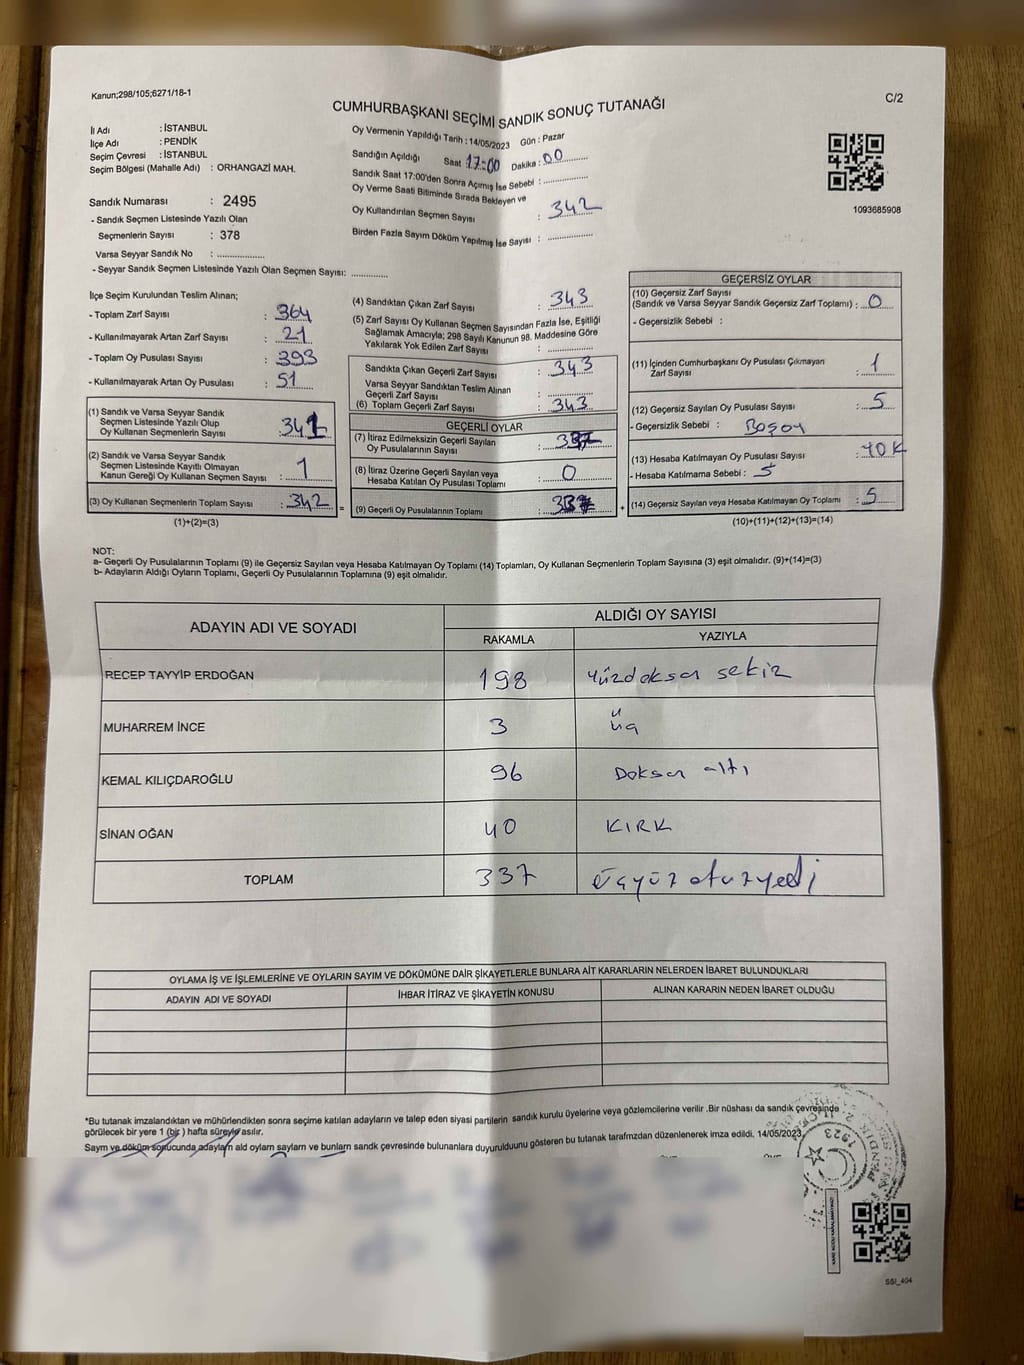 Kanun;298/105;6271/18-1
C/2
CUMHURBAŞKANI SEÇİMİ SANDIK SONUÇ TUTANAĞI
İl Adı : İSTANBUL
İlçe Adı : PENDİK
Seçim Çevresi : İSTANBUL
Seçim Bölgesi (Mahalle Adı) : ORHANGAZİ MAH.
Sandık Numarası : 2495
- Sandık Seçmen Listesinde Yazılı Olan
Seçmenlerin Sayısı : 378
Varsa Seyyar Sandık No : ..................
- Seyyar Sandık Seçmen Listesinde Yazılı Olan Seçmen Sayısı: .............
Oy Vermenin Yapıldığı Tarih : 14/05/2023 Gün : Pazar
Sandığın Açıldığı Saat 17:00 Dakika : 00
Sandık Saat 17:00'den Sonra Açımış İse Sebebi : ................
Oy Verme Saati Bitiminde Sırada Bekleyen ve
Oy Kullandırılan Seçmen Sayısı : 342
Birden Fazla Sayım Döküm Yapılmış İse Sayısı : ................
1093685908
İlçe Seçim Kurulundan Teslim Alınan;
- Toplam Zarf Sayısı : 364
- Kullanılmayarak Artan Zarf Sayısı : 21
- Toplam Oy Pusulası Sayısı : 393
- Kullanılmayarak Artan Oy Pusulası : 51
(1) Sandık ve Varsa Seyyar Sandık
Seçmen Listesinde Yazılı Olup
Oy Kullanan Seçmenlerin Sayısı : 341
(2) Sandık ve Varsa Seyyar Sandık
Seçmen Listesinde Kayıtlı Olmayan
Kanun Gereği Oy Kullanan Seçmen Sayısı : 1
(3) Oy Kullanan Seçmenlerin Toplam Sayısı : 342 =
(1)+(2)=(3)
(4) Sandıktan Çıkan Zarf Sayısı : 343
(5) Zarf Sayısı Oy Kullanan Seçmen Sayısından Fazla İse, Eşitliği
Sağlamak Amacıyla; 298 Sayılı Kanunun 98. Maddesine Göre
Yakılarak Yok Edilen Zarf Sayısı : ................
Sandıkta Çıkan Geçerli Zarf Sayısı : 343
Varsa Seyyar Sandıktan Teslim Alınan
Geçerli Zarf Sayısı : ................
(6) Toplam Geçerli Zarf Sayısı : 343
GEÇERLİ OYLAR
(7) İtiraz Edilmeksizin Geçerli Sayılan
Oy Pusulalarının Sayısı : 337
(8) İtiraz Üzerine Geçerli Sayılan veya
Hesaba Katılan Oy Pusulası Toplamı : 0
(9) Geçerli Oy Pusulalarının Toplamı : 337 +
GEÇERSİZ OYLAR
(10) Geçersiz Zarf Sayısı
(Sandık ve Varsa Seyyar Sandık Geçersiz Zarf Toplamı) : 0
- Geçersizlik Sebebi :
(11) İçinden Cumhurbaşkanı Oy Pusulası Çıkmayan
Zarf Sayısı : 1
(12) Geçersiz Sayılan Oy Pusulası Sayısı : 5
- Geçersizlik Sebebi : Boşoy
(13) Hesaba Katılmayan Oy Pusulası Sayısı : YOK
- Hesaba Katılmama Sebebi : 5
(14) Geçersiz Sayılan veya Hesaba Katılmayan Oy Toplamı : 5
(10)+(11)+(12)+(13)=(14)
NOT:
a- Geçerli Oy Pusulalarının Toplamı (9) ile Geçersiz Sayılan veya Hesaba Katılmayan Oy Toplamı (14) Toplamları, Oy Kullanan Seçmenlerin Toplam Sayısına (3) eşit olmalıdır. (9)+(14)=(3)
b- Adayların Aldığı Oyların Toplamı, Geçerli Oy Pusulalarının Toplamına (9) eşit olmalıdır.
ADAYIN ADI VE SOYADI
ALDIĞI OY SAYISI
RAKAMLA YAZIYLA
RECEP TAYYİP ERDOĞAN 198 Yüzdoksan sekiz
MUHARREM İNCE 3 üç
KEMAL KILIÇDAROĞLU 96 Doksan altı
SİNAN OĞAN 40 KIRK
TOPLAM 337 üçyüzotuzyedi
OYLAMA İŞ VE İŞLEMLERİNE VE OYLARIN SAYIM VE DÖKÜMÜNE DAİR ŞİKAYETLERLE BUNLARA AİT KARARLARIN NELERDEN İBARET BULUNDUKLARI
ADAYIN ADI VE SOYADI İHBAR İTİRAZ VE ŞİKAYETİN KONUSU ALINAN KARARIN NEDEN İBARET OLDUĞU
*Bu tutanak imzalandıktan ve mühürlendikten sonra seçime katılan adayların ve talep eden siyasi partilerin sandık kurulu üyelerine veya gözlemcilerine verilir .Bir nüshası da sandık çevresinde
görülecek bir yere 1 (bir ) hafta süreyle asılır.
Sayım ve döküm sonucunda adayların ald oyların sayların ve bunların sandık çevresinde bulunanlara duyurulduunu gösteren bu tutanak tarafmzdan düzenlenerek imza edildi. 14/05/2023
1923
SSI_404